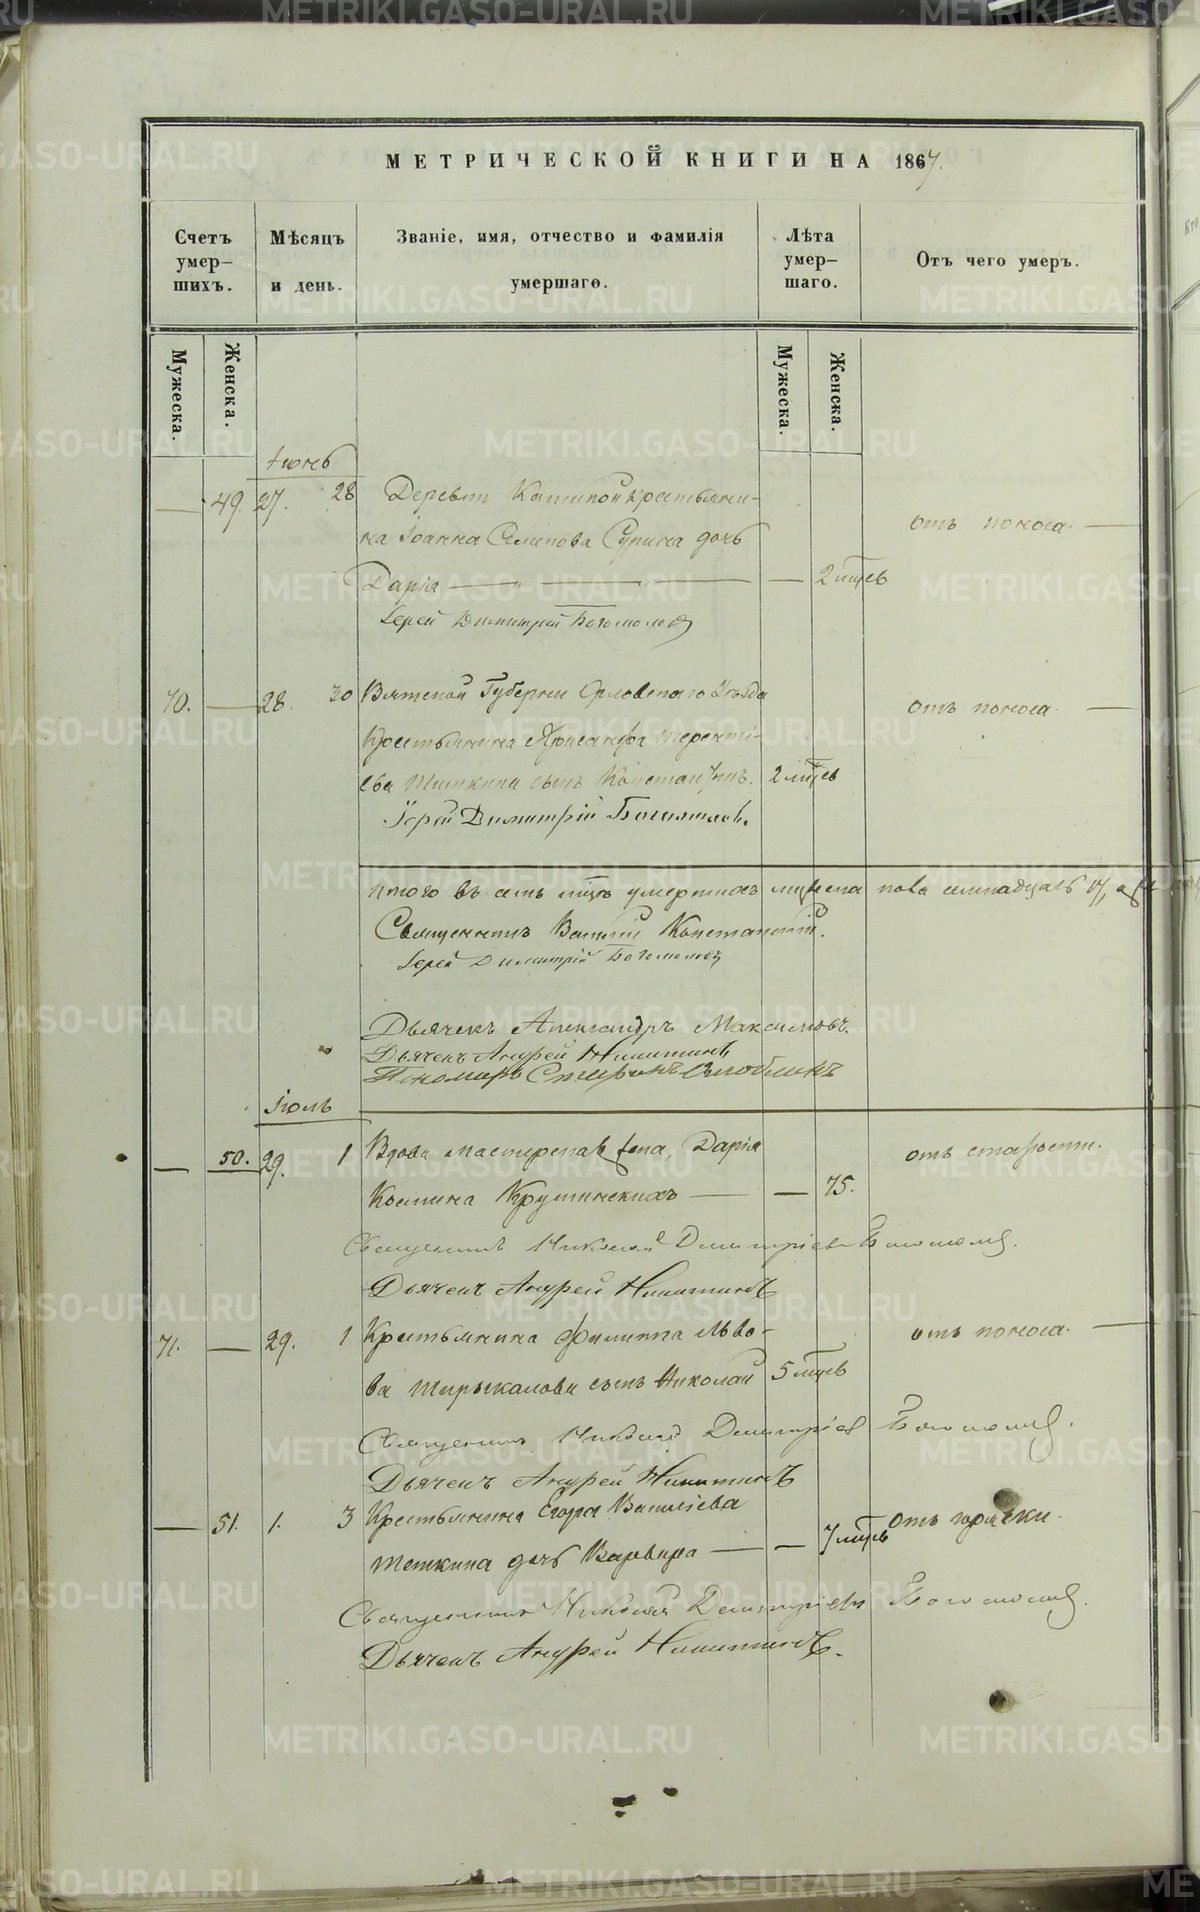 МЕТРИЧЕСКОЙ КНИГИ НА 1867.
Счетъ умер–шихъ.
Мѣсяцъ и день.
Званіе, имя, отчество и фамилія умершаго.
Лѣта умер–шаго.
Отъ чего умеръ.
Мужеска.
Женска.
Мужеска.
Женска.
Іюнь
49. 27. 28 Деревни крестьяни-
отъ поноса.
на Іоанна Сурина дочь
Дарія 2 мцъ
Іерей Димитрій Богомоловъ
70. 28. 30 Вятской Губерніи Орловскаго Уѣзда
отъ поноса.
Крестьянина Терентi-
ева сынъ Константинъ. 2 мцъ
Іерей Димитрій Богомоловъ.
Итого въ семъ мцѣ умершихъ мужеска пола семнадцать 17, а
Священникъ Василій
Іерей Димитрій Богомоловъ
Дьячекъ Александръ Максимовъ.
Дьячекъ Андрей Никитинъ
Пономарь Стефанъ
Іюль
50. 29. 1 Вдова мастерская жена, Дарія
отъ старости.
Козмина Крутинскихъ 75.
Священникъ Николай Димитріевъ Богомоловъ.
Дьячекъ Андрей Никитинъ
71. 29. 1 Крестьянина Филиппа Льво-
отъ поноса.
ва сынъ Николай 5 мцъ
Священникъ Николай Димитріевъ Богомоловъ.
Дьячекъ Андрей Никитинъ
51. 1. 3 Крестьянина Егора Васильева
отъ горячки.
Теткина дочь Варвара 7 мцъ
Священникъ Николай Димитріевъ Богомоловъ.
Дьячекъ Андрей Никитинъ.
METRIKI.GASO-URAL.RU